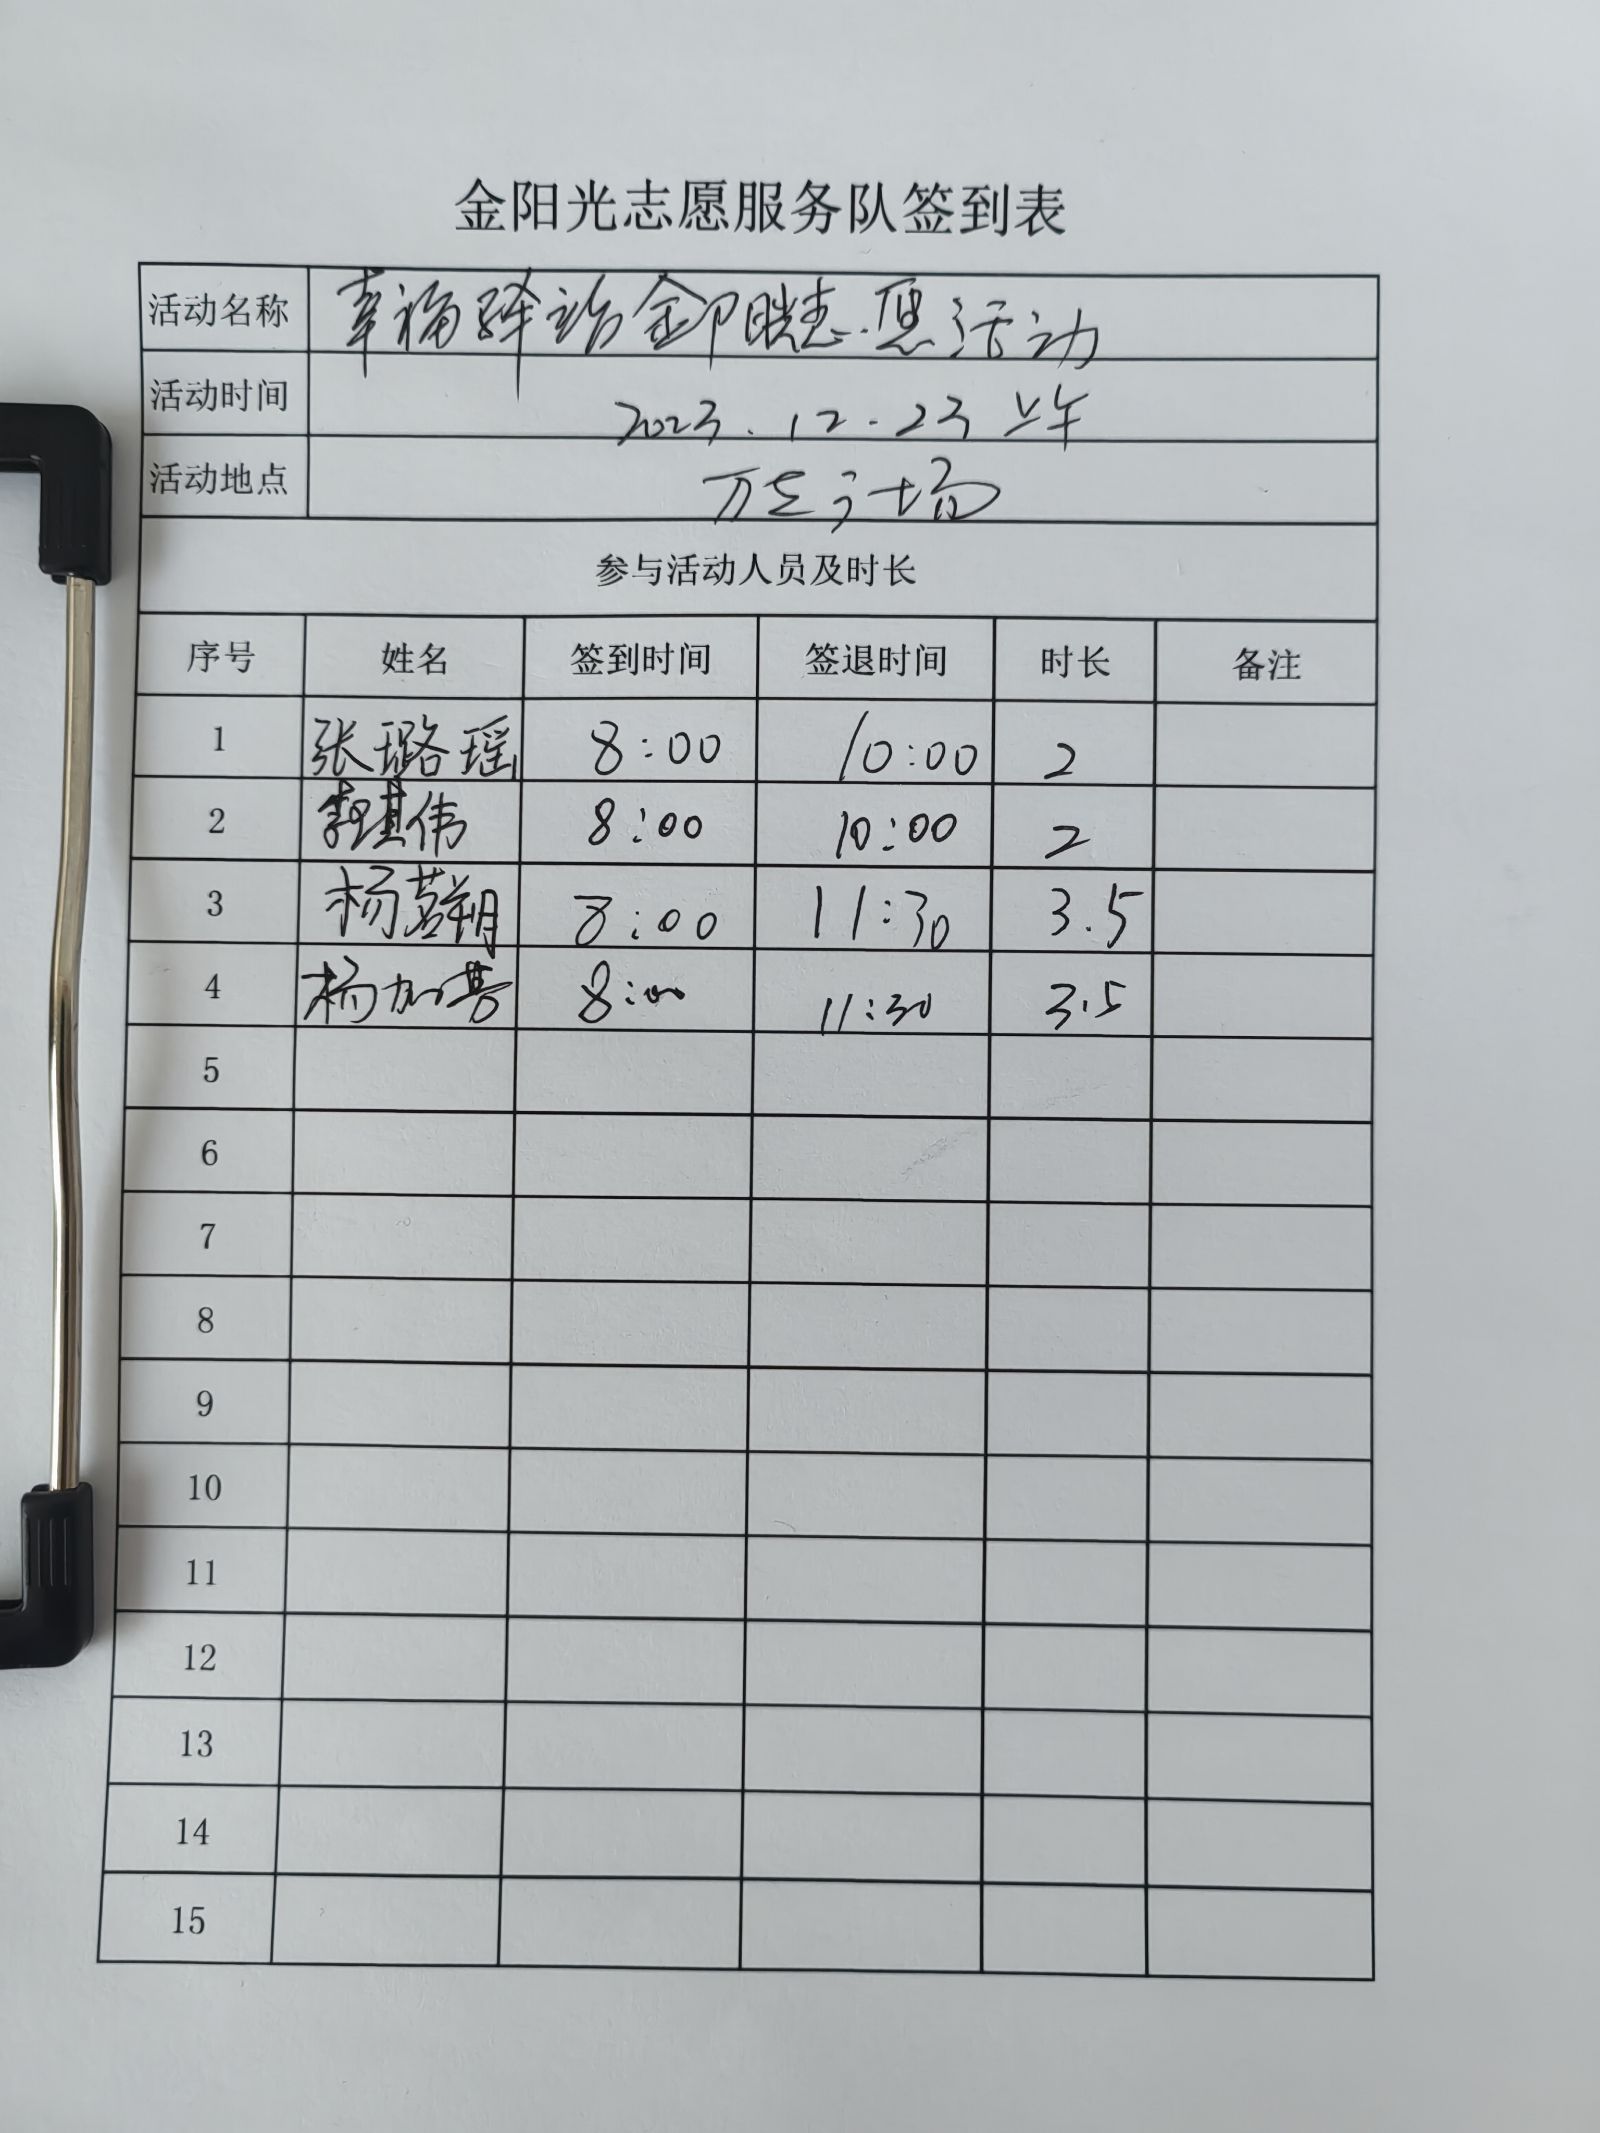 金阳光志愿服务队签到表
活动名称 幸福驿站金阳光志愿活动
活动时间 2023.12.23 上午
活动地点 万达广场
参与活动人员及时长
序号 姓名 签到时间 签退时间 时长 备注
1 张璐瑶 8:00 10:00 2
2 其伟 8:00 10:00 2
3 杨 朔 8:00 11:30 3.5
4 杨加 8:00 11:30 3.5
5
6
7
8
9
10
11
12
13
14
15